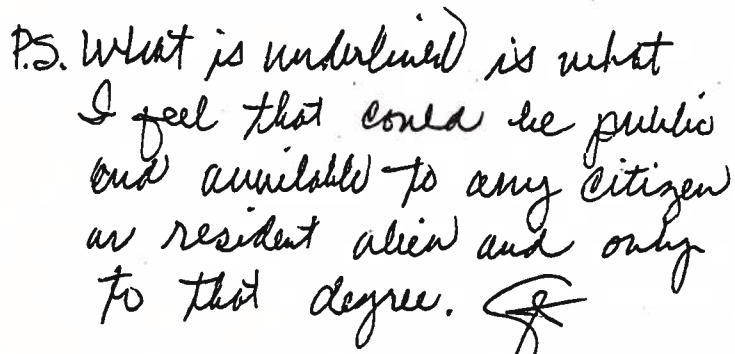 P.S. What is underlined is what
I feel that could be public
and available to any citizen
or resident alien and only
to that degree.